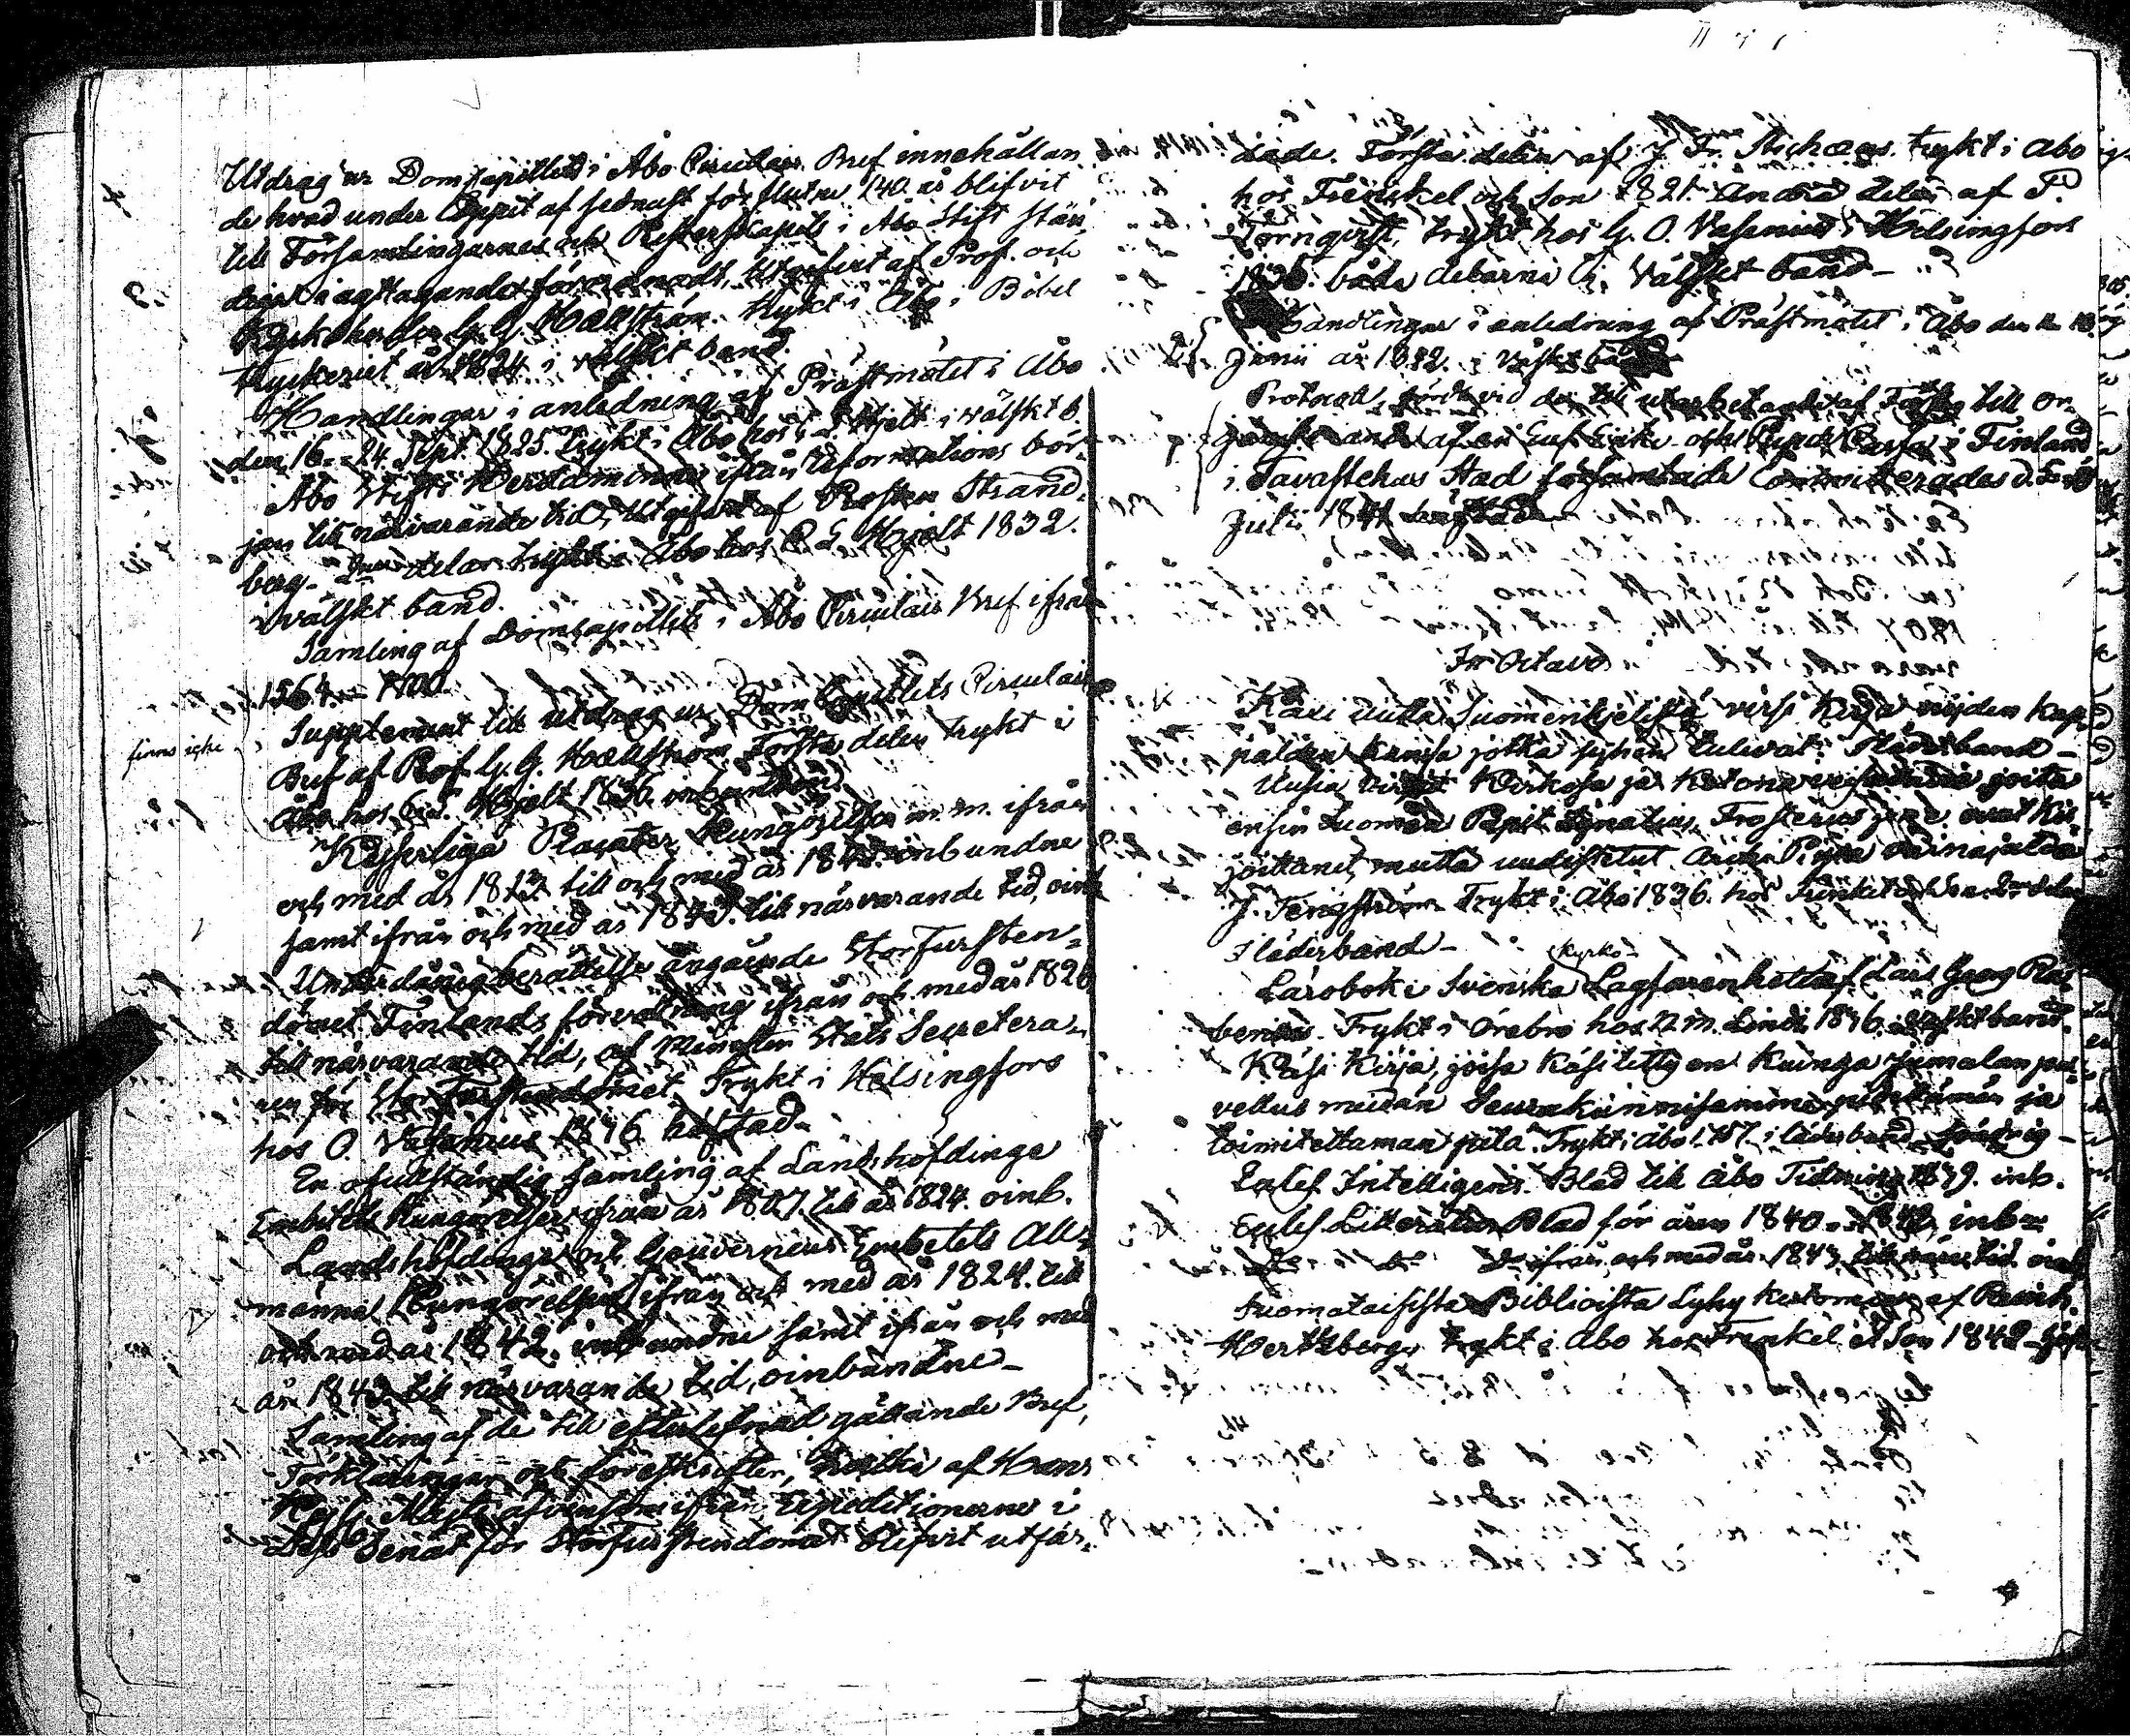 Utdrag ur Domcapitlets i Åbo Circulair Bref innehållan
de hvad under loppet af sednast för flutne 140. år blifvit
till Församlingarnes och Presterskapets i Åbo Stift stän
iagttagande förordnadt, utgifvet af Prof. och
Kyrkoherden G. G. Hällström. trykt i Åbo i Bibel
tryckeriet år 1824 i välskt band.
Handlingar i anledning af Prästmötet i Åbo
den 16-24 Sept. 1825. trykt i Åbo hos Hjelt i välskt b.
Åbo Stifts Herdaminne ifrån Reformations bör-
jan till närvarande tid, utgifvet af Prosten Strand-
berg. 2ne delar trykt i Åbo hos C. L. Hjelt 1832.
i välskt band.
Samling af Domcapitlets i Åbo Circulair Bref ifrån
1564 - 1700.
Supplement till utdrag ur Dom Capitlets Circulair
finns icke
Bref af Prof. G. G. Hällström Första delen trykt i
Åbo hos C. L. Hjelt 1836. oinbunden
Kejserliga Placater, Kungörelser m. m. ifrån
och med år 1813 till och med år 1842. inbundne
samt ifrån och med år 1843. till närvarande tid, oinb
Underdånig berättelse angående Storfursten-
dömet Finlands förvaltning ifrån och med år 1826
till närvarande tid, af Minister Stats Secretera-
ren för StorFurstendömet. Trykt i Helsingfors
hos O. Wasenius 1836 häftad.
En ofullständig samling af Landshöfdinge
Embetets Kungörelser ifrån år 1807. till år 1824. oinb.
Landshöfdinge och Gouverneurs Embetets All-
männa Kungörelser ifrån och med år 1824. till
och med år 1842. inbundne samt ifrån och med
år 1843 till närvarande tid, oinbundne-
Samling af de till efterlefnad gällande Bref,
Förklaringar och föreskrifter, hvilka af Hans
Kejs. Maj:t äfvensom ifrån Expeditionerne i
Dess Senat för Storfurstendömet blifvit utfär-
dade. Första delen af J. Fr. Michæus. trykt i Åbo
hos Frenckel och Son 1821. Andra delen af F.
Törnqvist, trykt hos G. O. Wasenius i Helsingfors
1836. båda delarne i Välskt band-
Handlingar i anledning af Prästmötet i Åbo den
Junii år 1842. i Välskt band
Protocoll, fördt vid det till utarbetandet af Förslag till or-
af en Enke- och Pupill Cassa i Finland
i Tavastehus Stad församlade Committerades d.
Julii 1841
In Octavo
Kaxi uutta Suomenkielistä virsi Kirja niiden Kap-
palden kansa jotka siihen tulevat. i läderband-
Uusia Virsiä Kirkosa ja Kotona joita
ensin Suomen Papit Ignatius, Frosterus ja ne ovat Kir-
joittanet, mutta uudistetut Archi Pispa vainajalda
J. Tengström. Trykt i Åbo 1836. hos Frenckel och Son.
i läderband-
kyrko-
Lärobok i Svenska Lagfarenheten af Lars Georg Ra-
benius. Trykt i Örebro hos N. M. Lindh 1836. i välskt band.
Käsi Kirja, joisa käsitetty on kuinga Jumalan pal-
vellus meidän Seurakunnisamme pidettämän ja
toimitettaman pitä. Trykt i Åbo 1757. i läderband
Exlef Intelligens Blad till Åbo Tidning 1839. inb.
Exlef Litteratur Blad för åren 1840. inb
D:o ifrån och med år 1843 till närv. tid. oinb
Suomalaisista Biblioista Lyhy Kertomus af Reinh.
Hertzberg, trykt i Åbo hos Frenckel et Son 1842